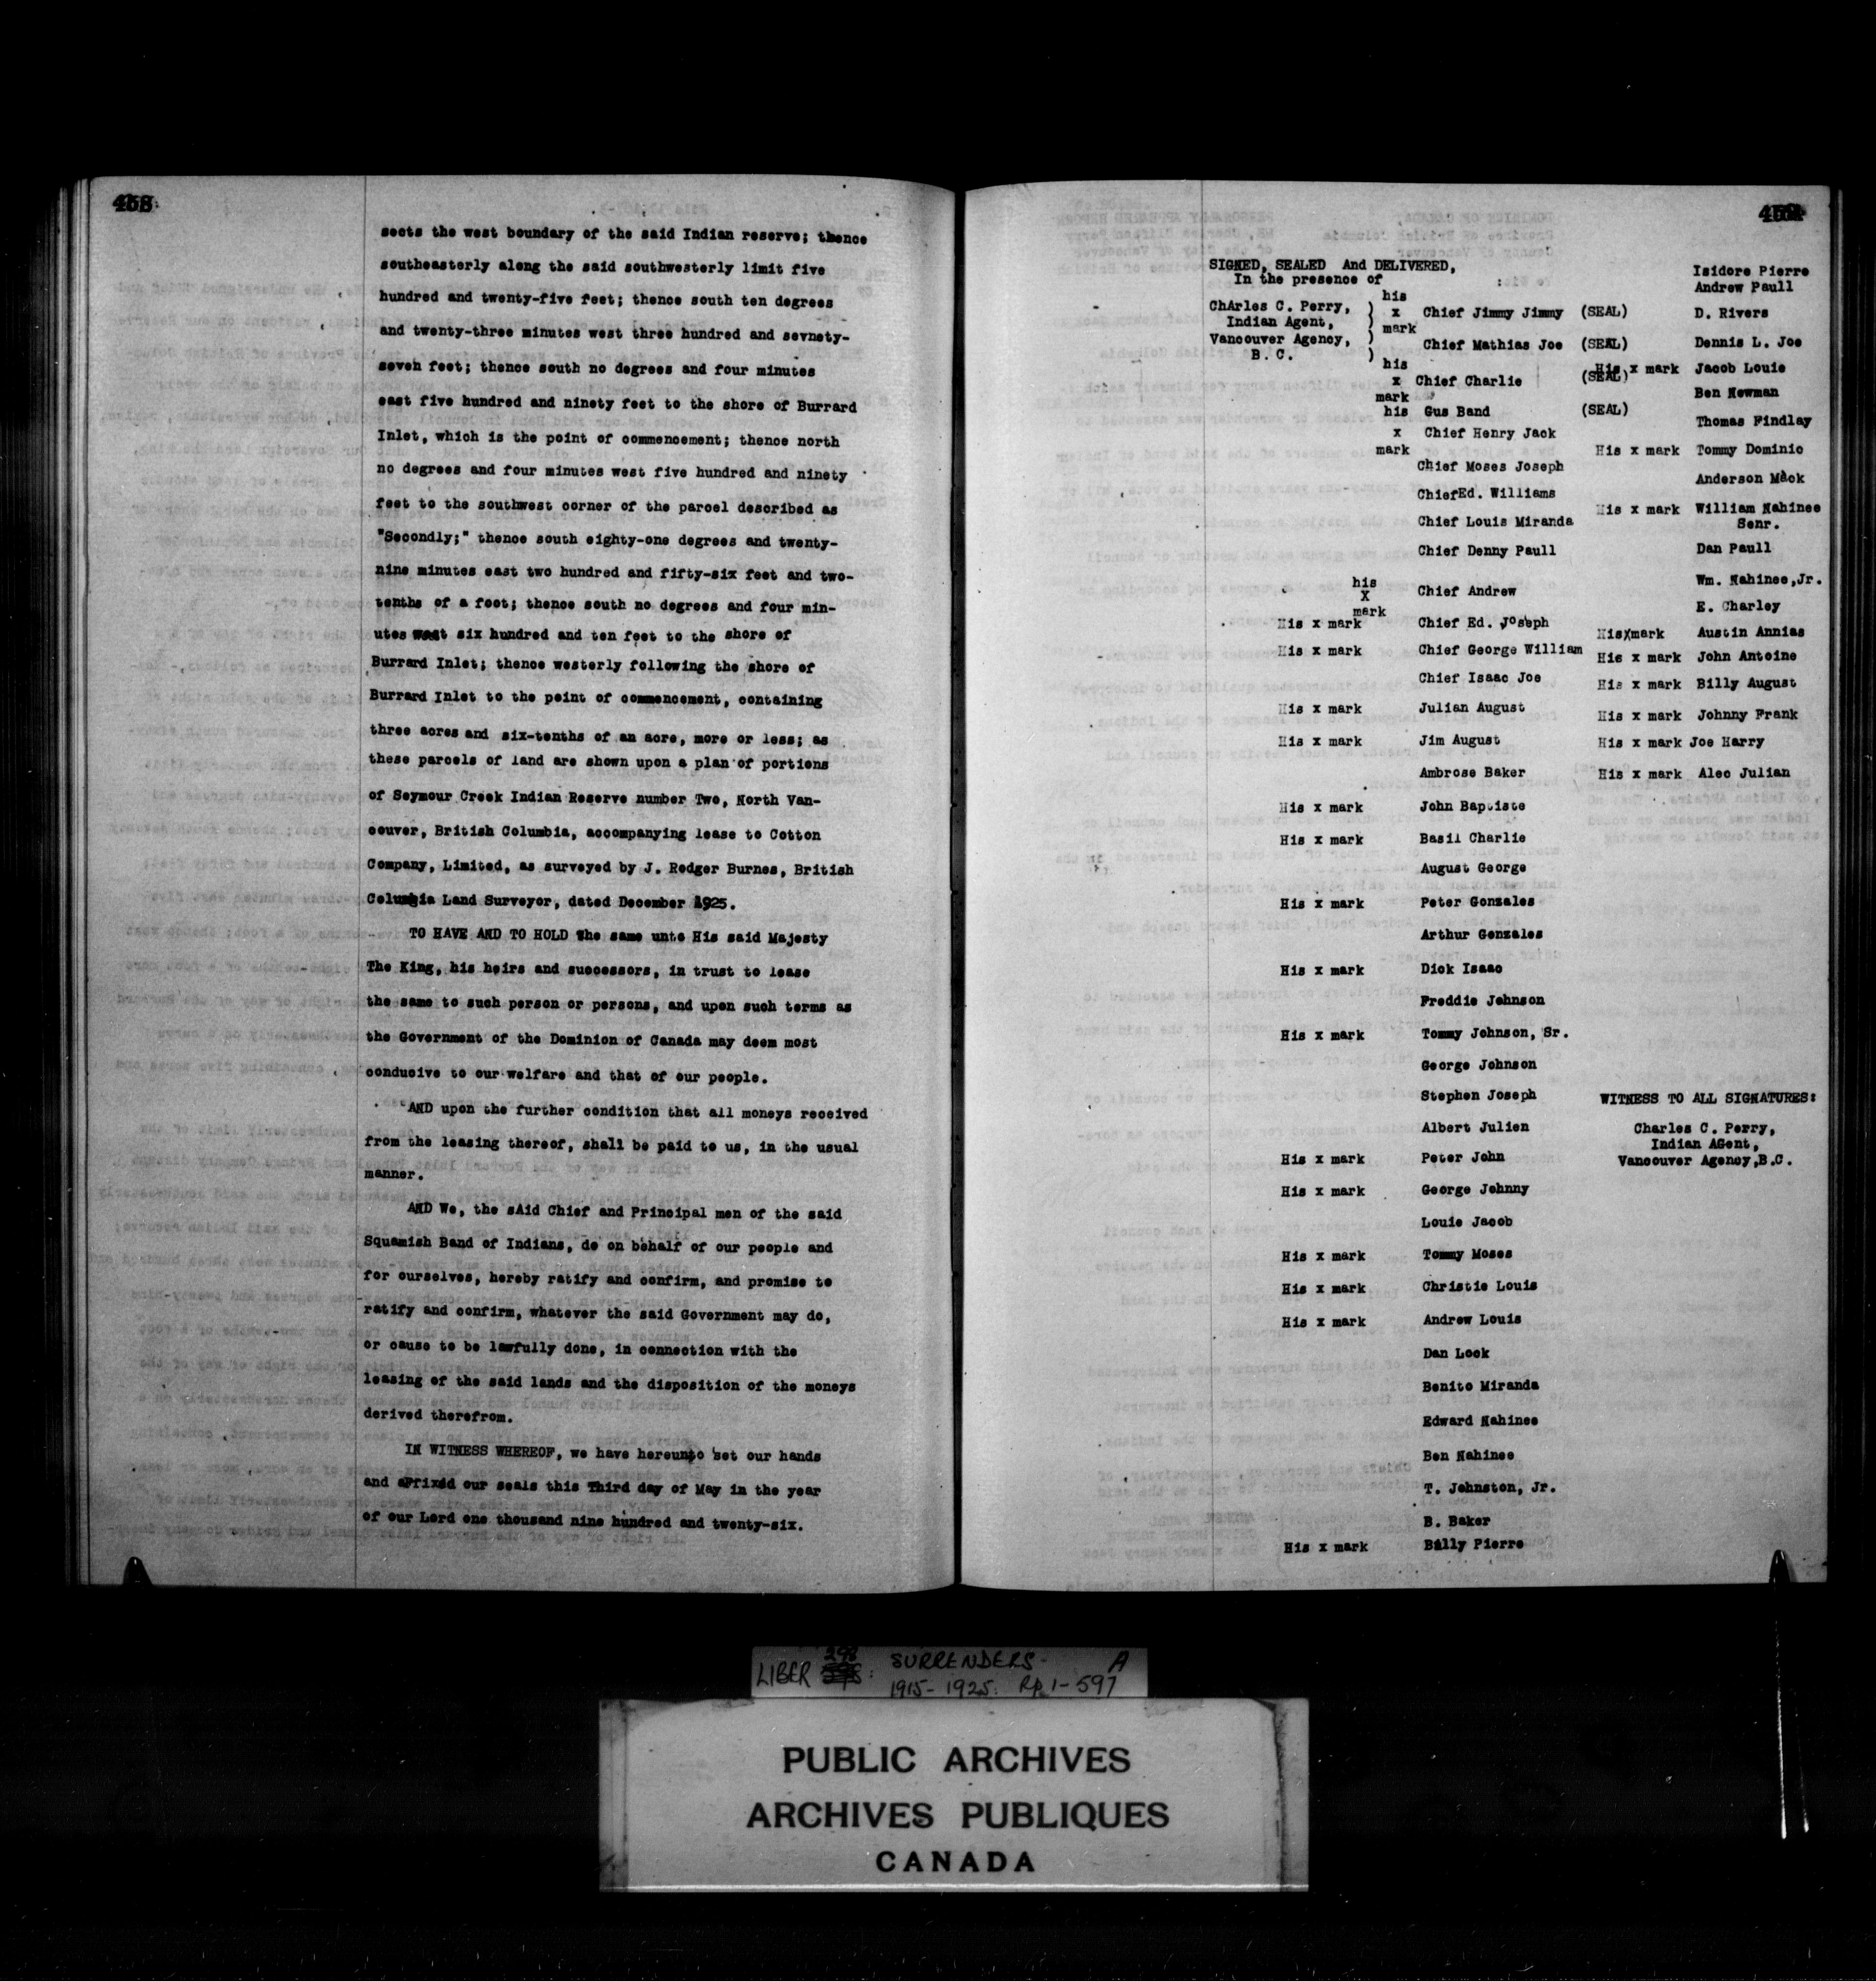 458
sects the west boundary of the said Indian reserve; thence
southeasterly along the said southwesterly limit five
hundred and twenty-five feet; thence south ten degrees
and twenty-three minutes west three hundred and sevnety-
seven feet; thence south no degrees and four minutes
east five hundred and ninety feet to the shore of Burrard
Inlet, which is the point of commencement; thence north
no degrees and four minutes west five hundred and ninety
feet to the southwest corner of the parcel described as
"Secondly;" thence south eighty-one degrees and twenty-
nine minutes east two hundred and fifty-six feet and two-
tenths of a foot; thence south no degrees and four min-
utes six hundred and ten feet to the shore of
Burrard Inlet; thence westerly following the shore of
Burrard Inlet to the point of commencement, containing
three acres and six-tenths of an acre, more or less; as
these parcels of land are shown upon a plan of portions
of Seymour Creek Indian Reserve number Two, North Van-
couver, British Columbia, accompanying lease to Cotton
Company, Limited, as surveyed by J. Rodger Burnes, British
Columbia Land Surveyor, dated December 1925.
TO HAVE AND TO HOLD the same unto His said Majesty
The King, his heirs and successors, in trust to lease
the same to such person or persons, and upon such terms as
the Government of the Dominion of Canada may deem most
conducive to our welfare and that of our people.
AND upon the further condition that all moneys received
from the leasing thereof, shall be paid to us, in the usual
manner.
AND We, the sAid Chief and Principal men of the said
Squamish Band of Indians, do on behalf of our people and
for ourselves, hereby ratify and confirm, and promise to
ratify and confirm, whatever the said Government may do,
or cause to be lawfully done, in connection with the
leasing of the said lands and the disposition of the moneys
derived therefrom.
IN WITNESS WHEREOF, we have hereunto set our hands
and affixed our seals this Third day of May in the year
of our Lord one thousand nine hundred and twenty-six.
SIGNED, SEALED And DELIVERED,
In the presence of
ChArles C. Perry,
Indian Agent,
Vancouver Agency,
B.C.
his x mark Chief Jimmy Jimmy (SEAL)
Chief Mathias Joe (SEAL)
his x mark Chief Charlie (SEAL)
Gus Band (SEAL)
his x mark Chief Henry Jack
Chief Moses Joseph
ChiefEd. Williams
Chief Louis Miranda
Chief Denny Paull
his X mark Chief Andrew
His x mark Chief Ed. Joseph
His x mark Chief George William
Chief Isaac Joe
His x mark Julian August
His x mark Jim August
Ambrose Baker
His x mark John Baptiste
His x mark Basil Charlie
August George
His x mark Peter Gonzales
Arthur Gonzales
His x mark Dick Isaac
Freddie Johnson
His x mark Tommy Johnson, Sr.
George Johnson
Stephen Joseph
Albert Julien
His x mark Peter John
His x mark George Johnny
Louie Jacob
His x mark Tommy Moses
His x mark Christie Louis
His x mark Andrew Louis
Dan Look
Benito Miranda
Edward Nahinee
Ben Nahinee
T. Johnston, Jr.
B. Baker
His x mark Billy Pierre
Isidore Pierre
Andrew Paull
D. Rivers
Dennis L. Joe
His x mark Jacob Louie
Ben Newman
Thomas Findlay
His x mark Tommy Dominic
Anderson Mack
His x mark William Nahinee
Senr.
Dan Paull
Wm. Nahinee,Jr.
E. Charley
HisXmark Austin Annias
His x mark John Antoine
His x mark Billy August
His x mark Johnny Frank
His x mark Joe Harry
His x mark Alec Julian
WITNESS TO ALL SIGNATURES:
Charles C. Perry,
Indian AGent,
Vancouver Agency,B.C.
LIBER 293: SURRENDERS- A
1915-1925. Pp 1-597
PUBLIC ARCHIVES
ARCHIVES PUBLIQUES
CANADA